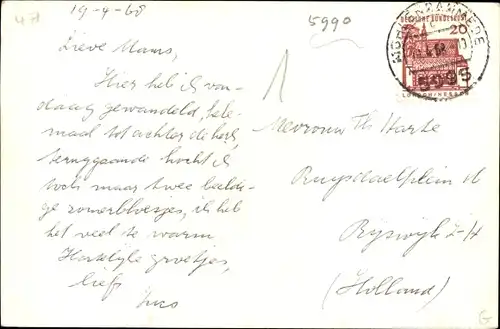 47
19-4-68
5990
Lieve Mams,
Hier heb ik van-
daag gewandeld, hele-
maal tot achter de kerk,
teruggaande kocht ik
toch maar twee beeldi-
ge zomerbloesjes, ik heb
het veel te warm
Hartelijke groetjes,
liefs
DEUTSCHE BUNDESPOST
20
LORSCH/HESSEN
Mevrouw Th Harte
Ruysdaelplein 16
Rijswijk Z-H
(Holland)